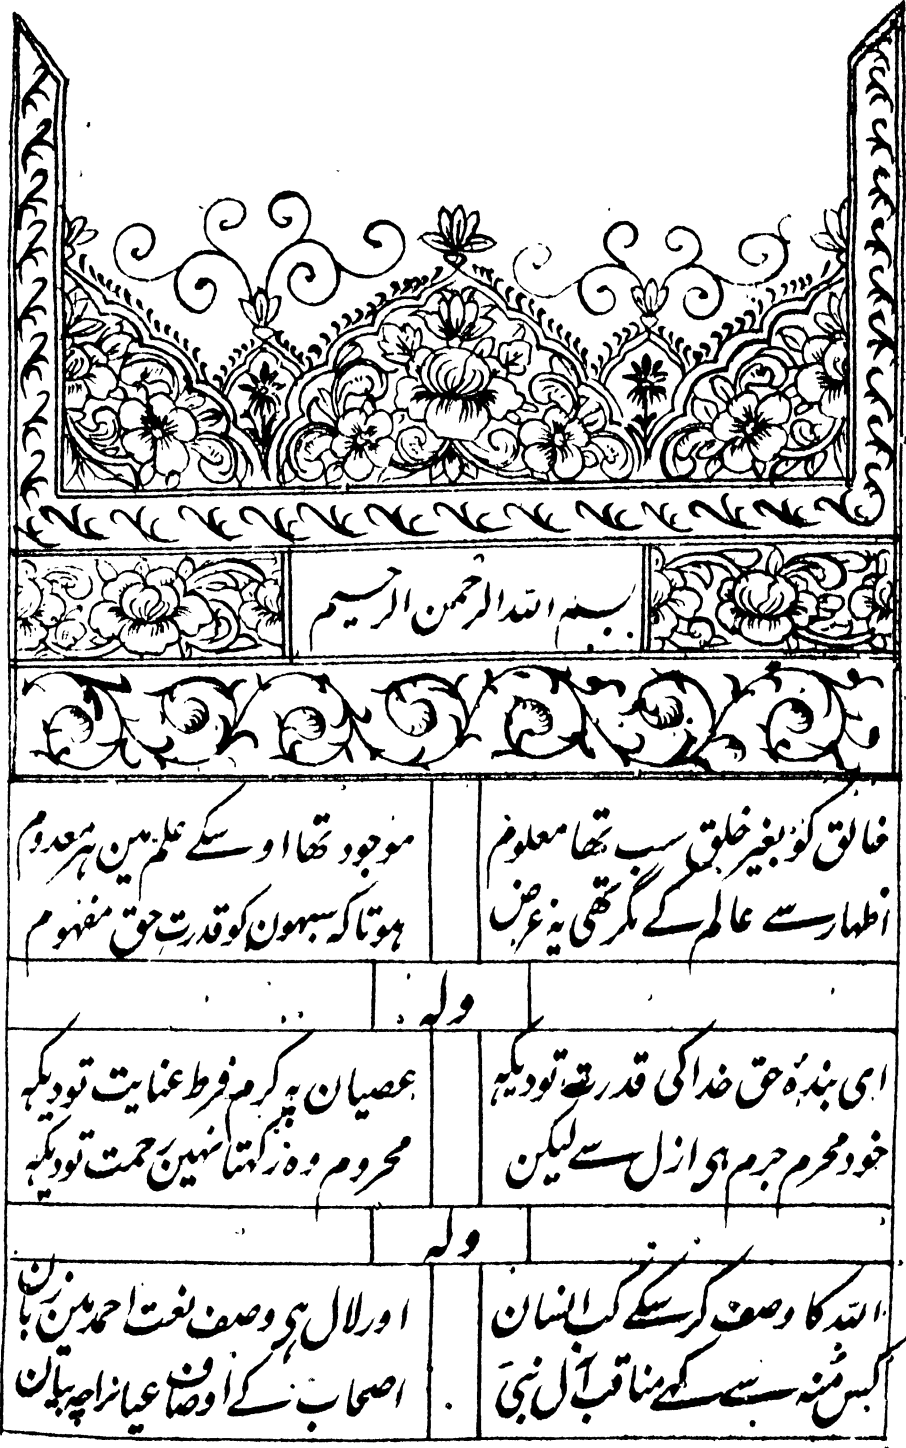 بسم اللہ الرحمن الرحیم
خالق کو بغیر خلق سب تھا معلوم موجود تھا اوسکے علم مین ہر معدوم
اظہار سے عالم کے مگر تھی یہ غرض ہوتا کہ سبھون کو قدرت حق مفہوم
ولہ
ای بندۂ حق خدا کی قدرت تو دیکھ عصیان پہ کرم فرط عنایت تو دیکھ
خود محرم جرم ہی ازل سے لیکن محروم وہ رکھتا نہین رحمت تو دیکھ
ولہ
اللہ کا وصف کر سکے کب انسان اور لال ہی وصف نعت احمد مین زبان
کس مُنہ سے کہے مناقب آل نبی اصحاب کے اوصاف عیانرا چہ بیان